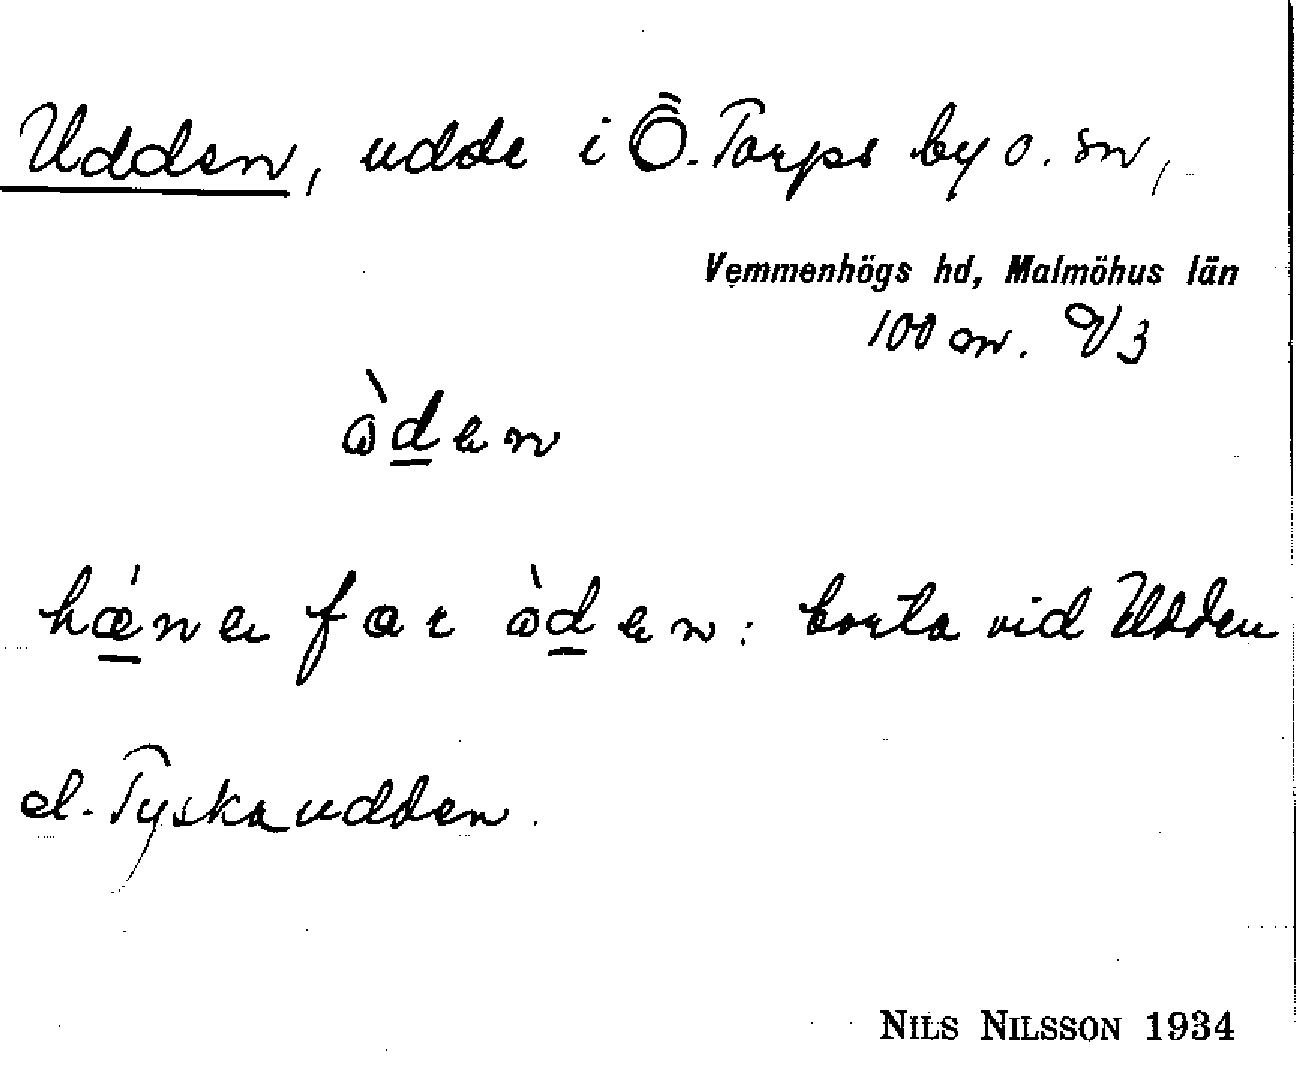 Udden, udde i Ö. Torps by o. sn,
Vemmenhögs hd, Malmöhus län
100 m. V3
òden
hǽna far òden: borta vid Udden
el. Tyska udden.
NILS NILSSON 1934